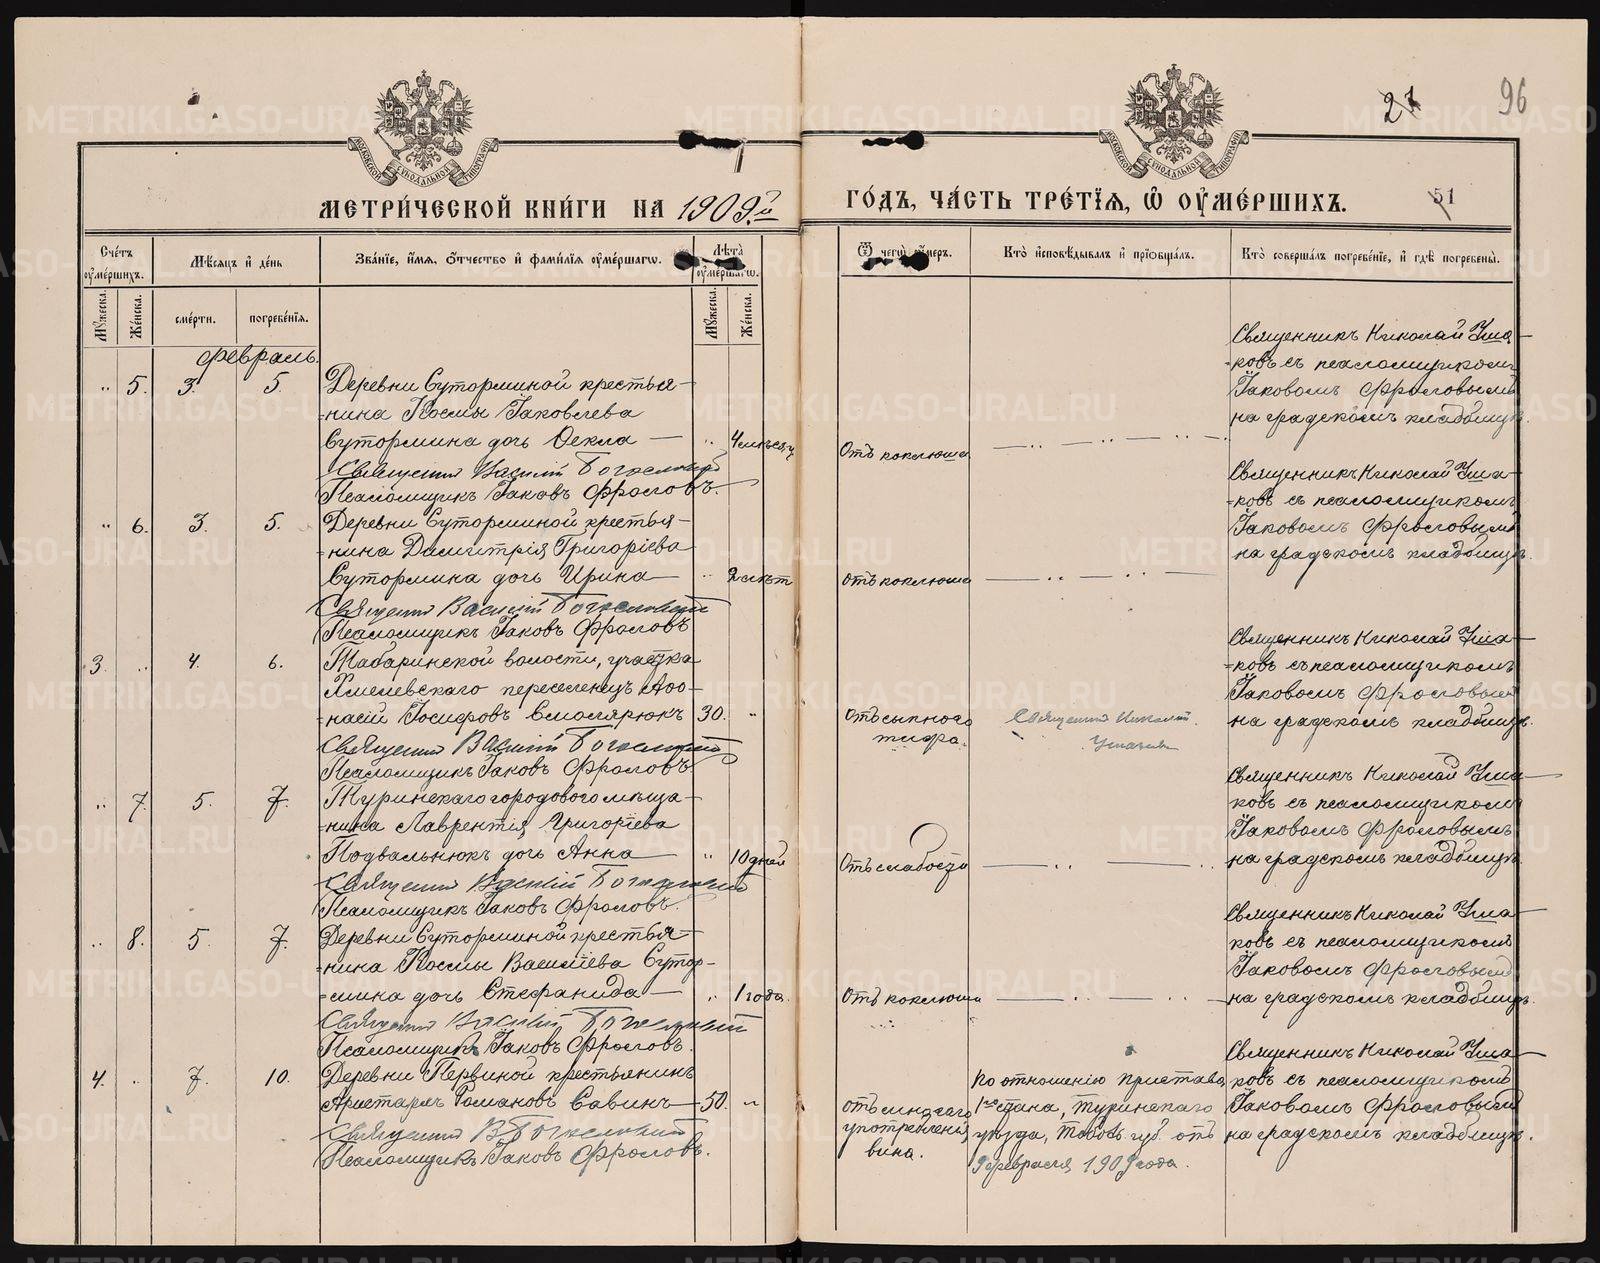 27
96
51
МОСКОВСКОЙ СѴНОДАЛЬНОЙ ТИПОГРАФІИ
МОСКОВСКОЙ СѴНОДАЛЬНОЙ ТИПОГРАФІИ
МЕТРИ́ЧЕСКОЙ КНИ́ГИ НА 1909й
ГО́ДЪ, ЧА́СТЬ ТРЕ́ТІѦ, Ѽ ОУ҆МЕ́РШИХЪ.
Сче́тъ оу҆ме́ршихъ.
Мѣ́сяцъ и҆ де́нь
Зва́нїе, и҆́мѧ, ѻ҆́тчество и҆ фами́лїѧ оу҆ме́ршагѡ.
Лѣ́та оу҆ме́ршагѡ.
Ѿ чегѡ̀ оу҆́меръ.
Кто̀ и҆сповѣ́дывалъ и҆ прїѡбща́лъ.
Кто̀ соверша́лъ погребе́нїе, и҆ гдѣ̀ погребены̀.
Мꙋ́жеска.
Же́нска.
сме́рти.
погребе́нїѧ.
Мꙋ́жеска.
Же́нска.
февраль.
" 5. 3. 5. Деревни Суторминой крестья-
=нина Космы Іаковлева
Сутормина дочь Ѳекла — " 4 мѣсяц
Священник Василій Богословскій
Псаломщикъ Іаковъ Фроловъ.
Отъ коклюша
Священникъ Николай Уша-
=ковъ съ псаломщикомъ
Іаковомъ Фроловымъ
на градскомъ кладбищѣ.
" 6. 3. 5. Деревни Суторминой крестья-
=нина Димитрія Григоріева
Сутормина дочь Ирина — " 2 лѣт
Священник Василій Богословскій
Псаломщикъ Іаковъ Фроловъ
отъ коклюша
Священникъ Николай Уша-
=ковъ съ псаломщикомъ
Іаковомъ Фроловымъ
на градскомъ кладбищѣ.
3. " 4. 6. Табаринской волости, участка
Хмелевскаго переселенецъ Аѳа-
=насій Іосифовъ Смолярюкъ 30. "
Священник Василій Богословскій
Псаломщикъ Іаковъ Фроловъ
Отъ сыпного
тифа.
Священник Николай
Ушаков
Священникъ Николай Уша-
=ковъ съ псаломщикомъ
Іаковомъ Фроловым
на градскомъ кладбищѣ.
" 7. 5. 7. Туринскаго городового мѣща-
=нина Лаврентія Григоріева
Подвальнюкъ дочь Анна — " 10 дней
Священник Василій Богословскій
Псаломщикъ Іаковъ Фроловъ.
Отъ слабости
Священникъ Николай Уша-
ковъ съ псаломщикомъ
Іаковомъ Фроловымъ
на градскомъ кладбищѣ.
" 8. 5. 7. Деревни Суторминой крестья-
=нина Космы Василіева Сутор-
=мина дочь Стефанида — " 1 года.
Священник Василій Богословскій
Псаломщикъ Іаковъ Фроловъ.
Отъ коклюша
Священникъ Николай Уша-
ковъ съ псаломщикомъ
Іаковомъ Фроловым
на градскомъ кладбищѣ.
4. " 7. 10. Деревни Первиной крестьянинъ
Аристархъ Романовъ Савинъ — 50. "
Священник В Богословскій
Псаломщикъ Іаковъ Фроловъ.
отъ многаго
употребленія
вина.
По отношенію пристава
1го стана, Туринскаго
уѣзда, Тобол. губ. отъ
9 февраля 1909 года.
Священникъ Николай Уша-
ковъ съ псаломщикомъ
Іаковомъ Фроловым
на градскомъ кладбищѣ.
METRIKI.GASO-URAL.RU